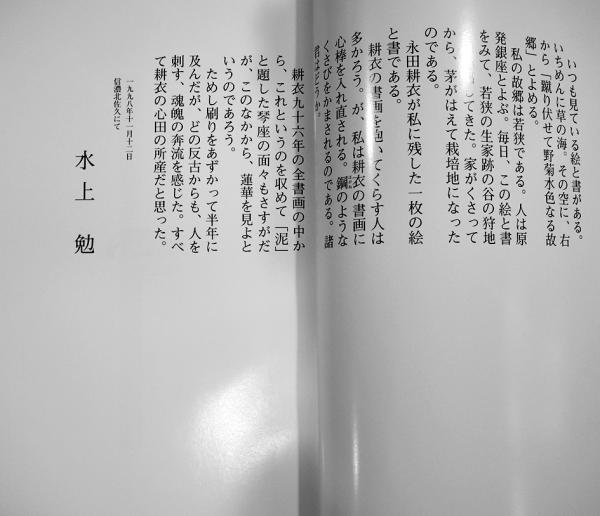 いつも見ている絵と書がある。
いちめんに草の海。その空に、右
から「蹴り伏せて野菊水色なる故
郷」とよめる。
私の故郷は若狭である。人は原
発銀座とよぶ。毎日、この絵と書
をみて、若狭の生家跡の谷の狩地
してきた。家がくさって
から、茅がはえて栽培地になった
のである。
永田耕衣が私に残した一枚の絵
と書である。
耕衣の書画を抱いてくらす人は
多かろう。が、私は耕衣の書画に
心棒を入れ直される。鋼のような
くさびをかまされるのである。諸
君はどうか。
耕衣九十六年の全書画の中か
ら、これというのを収めて「泥」
と題した琴座の面々もさすがだ
が、このなかから、蓮華を見よと
いうのであろう。
ためし刷りをあずかって半年に
及んだが、どの反古からも、人を
刺す、魂魄の奔流を感じた。すべ
て耕衣の心田の所産だと思った。
一九九八年十一月十二日
信濃北佐久にて
水上 勉